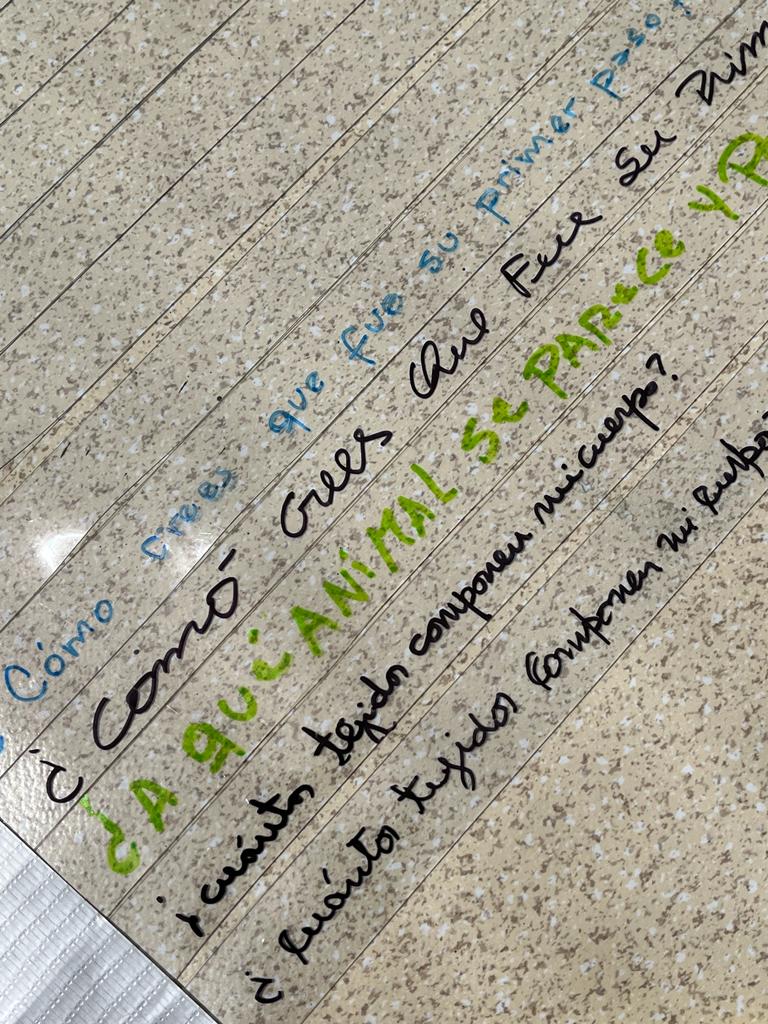 Cómo crees que fue su primer paso
¿ Cómo crees Que Fue Su Prim
¿A QUÉ ANIMAL SE PARECE Y P
¿cuántos tejidos componen mi cuerpo?
¿ cuántos tejidos componen mi cuerpo?